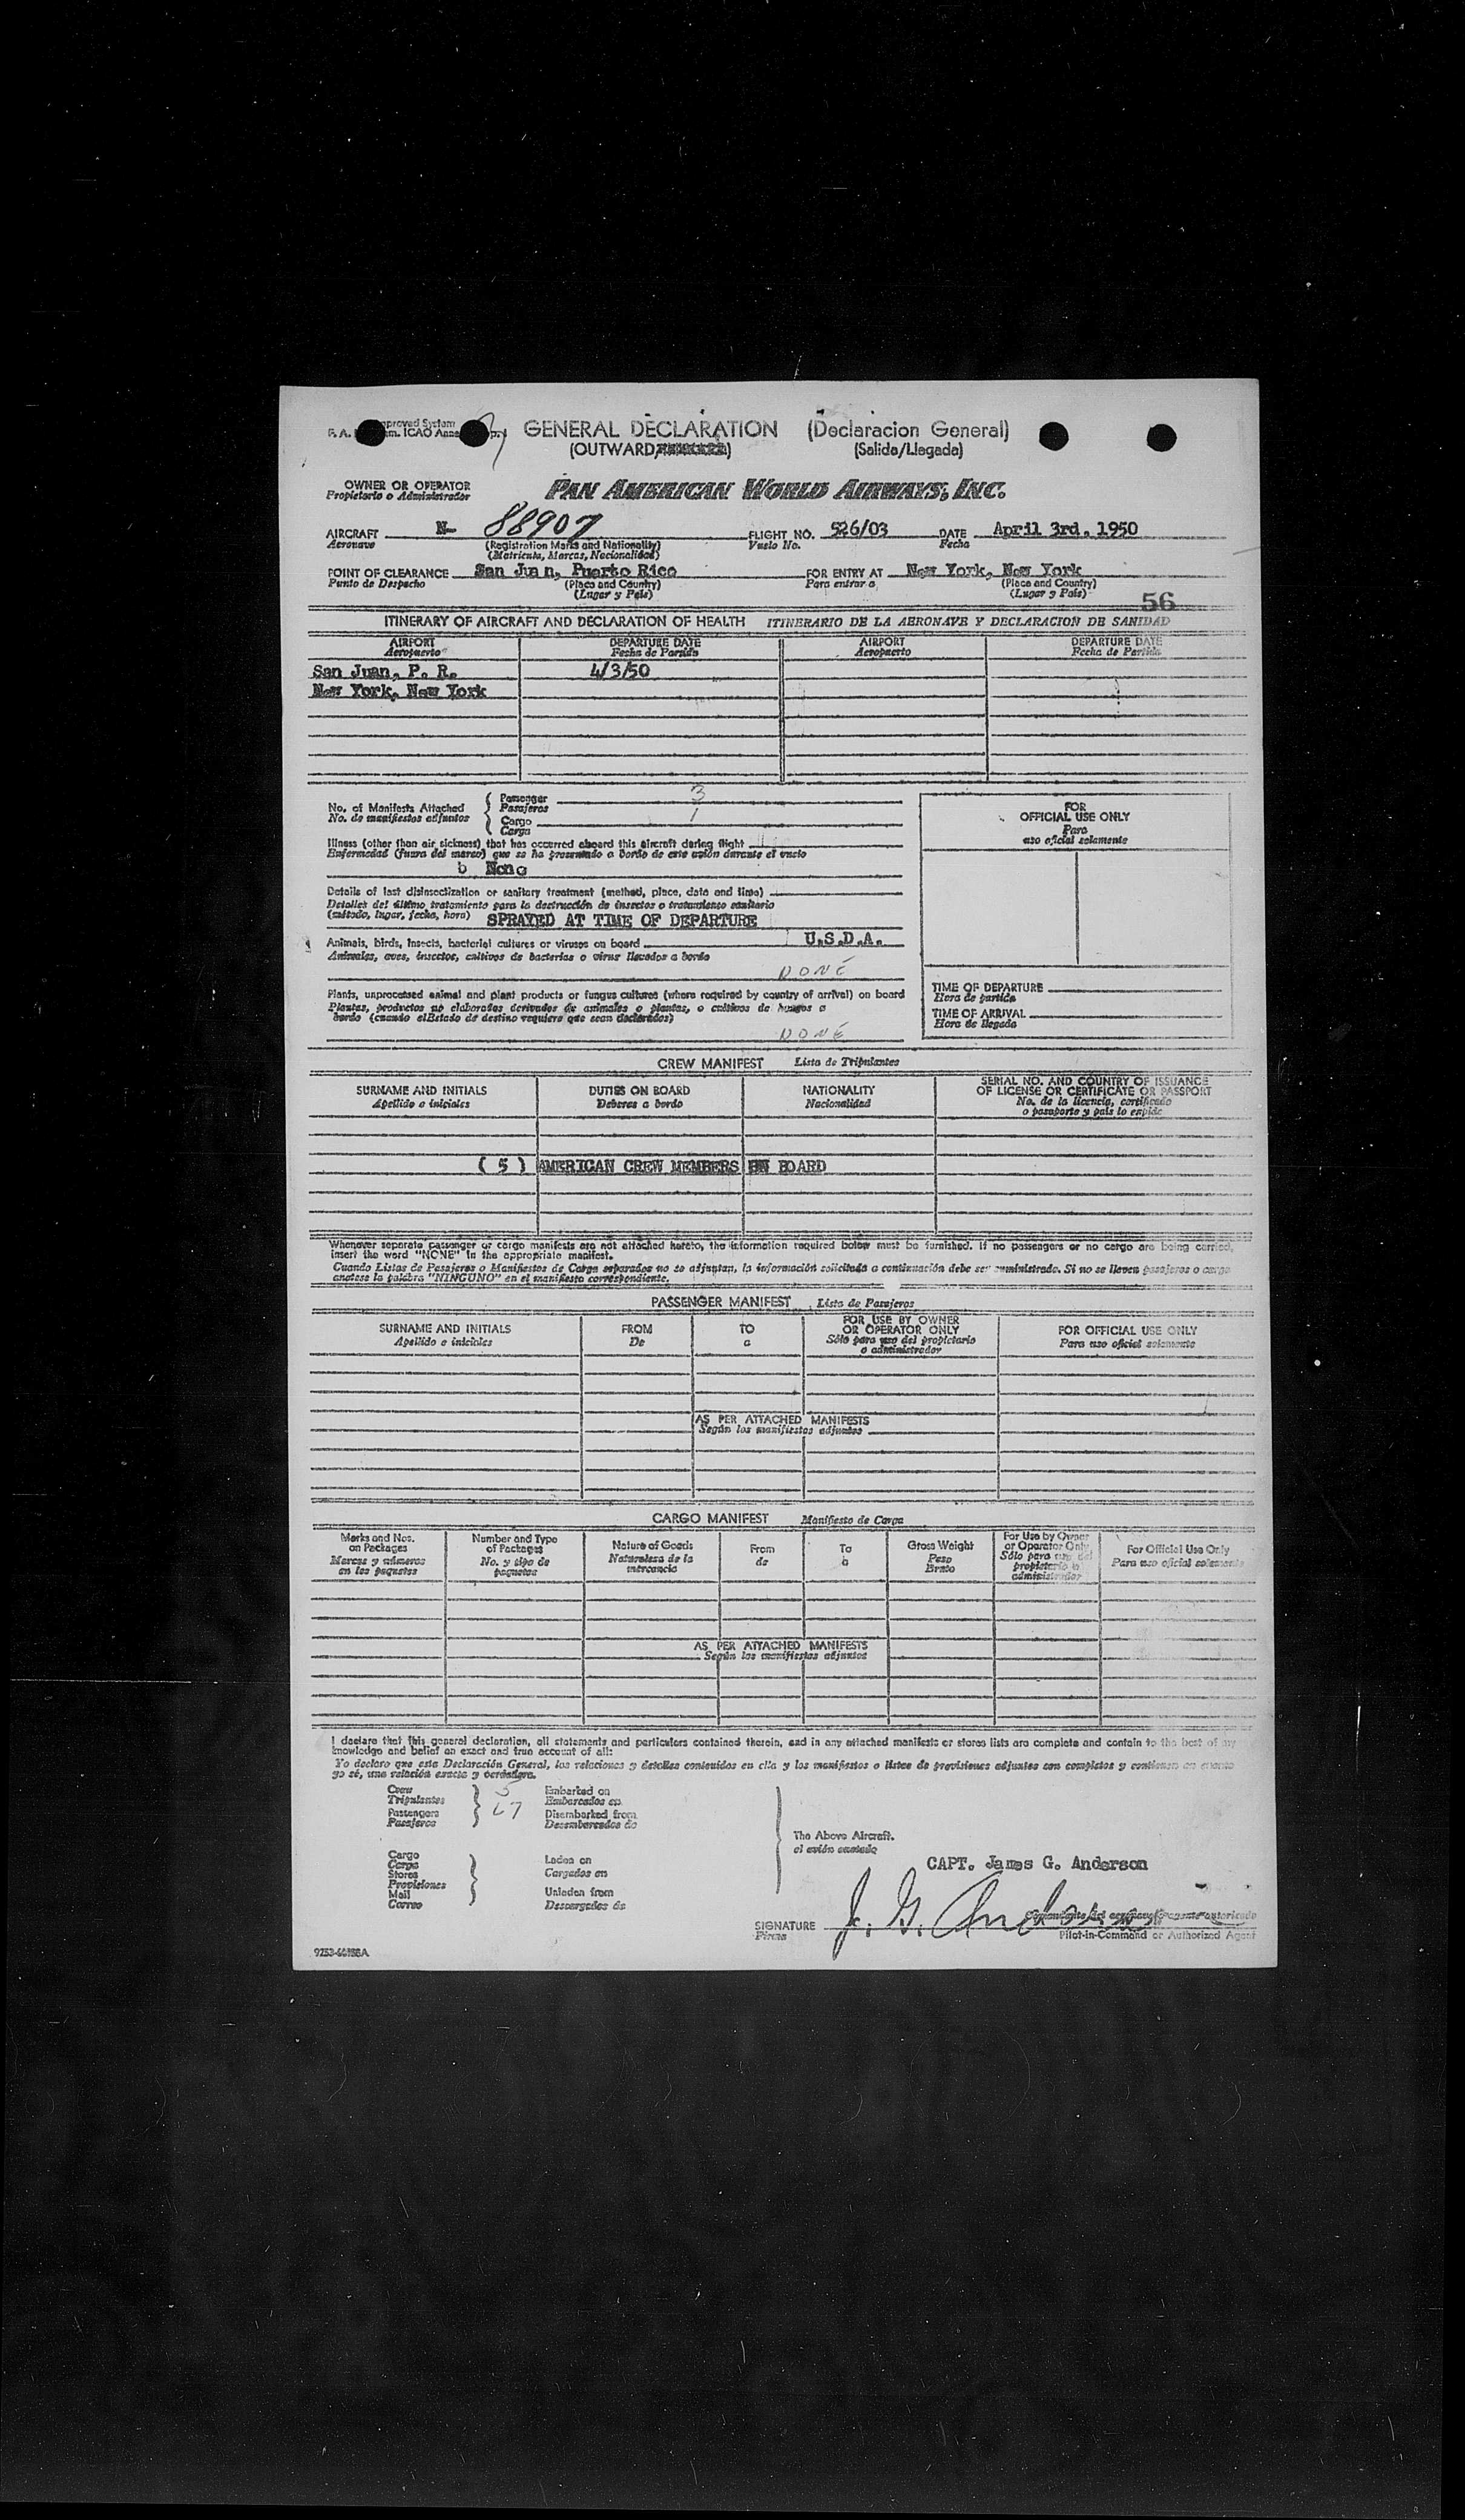 GENERAL DECLARATION (Declaracion General)
(OUTWARD/ (Salida/Llegada)
OWNER OR OPERATOR
Propietario o Administrador
PAN AMERICAN WORLD AIRWAYS, INC.
AIRCRAFT N- 88907 FLIGHT NO. 526/03 DATE April 3rd, 1950
Aeronave (Registration Marks and Nationality) Vuelo No. Fecha
(Matricula, Marcas, Nacionalidad)
POINT OF CLEARANCE San Juan, Puerto Rico FOR ENTRY AT New York, New York
Punto de Despacho (Place and Country) Para entrar a (Place and Country)
(Lugar y País) (Lugar y País)
56
ITINERARY OF AIRCRAFT AND DECLARATION OF HEALTH ITINERARIO DE LA AERONAVE Y DECLARACION DE SANIDAD
AIRPORT DEPARTURE DATE AIRPORT DEPARTURE DATE
Aeropuerto Fecha de Partida Aeropuerto Fecha de Partida
San Juan, P. R. 4/3/50
New York, New York
No. of Manifests Attached
No. de manifiestos adjuntos
Passenger 3
Pasajeros
Cargo 1
Carga
Illness (other than air sickness) that has occurred aboard this aircraft during flight
Enfermedad (fuera del mareo) que se ha presentado a bordo de este avión durante el vuelo
None
Details of last disinsectization or sanitary treatment (method, place, date and time)
Detalles del último tratamiento para la destrucción de insectos o tratamiento sanitario
(método, lugar, fecha, hora) SPRAYED AT TIME OF DEPARTURE
Animals, birds, insects, bacterial cultures or viruses on board U.S.D.A.
Animales, aves, insectos, cultivos de bacterias o virus llevados a bordo
NONE
Plants, unprocessed animal and plant products or fungus cultures (where required by country of arrival) on board
Plantas, productos no elaborados derivados de animales o plantas, o cultivos de hongos a
bordo (cuando el Estado de destino requiere que sean declarados)
NONE
FOR
OFFICIAL USE ONLY
Para
uso oficial solamente
TIME OF DEPARTURE
Hora de partida
TIME OF ARRIVAL
Hora de llegada
CREW MANIFEST Lista de Tripulantes
SURNAME AND INITIALS DUTIES ON BOARD NATIONALITY SERIAL NO. AND COUNTRY OF ISSUANCE
OF LICENSE OR CERTIFICATE OR PASSPORT
Apellido e iniciales Deberes a bordo Nacionalidad No. de la licencia, certificado
o pasaporte y país lo expide
( 5 ) AMERICAN CREW MEMBERS ON BOARD
Whenever separate passenger or cargo manifests are not attached hereto, the information required below must be furnished. If no passengers or no cargo are being carried,
insert the word "NONE" in the appropriate manifest.
Cuando Listas de Pasajeros o Manifiestos de Carga separados no se adjuntan, la información solicitada a continuación debe ser suministrada. Si no se lleven pasajeros o carga
anotese la palabra "NINGUNO" en el manifiesto correspondiente.
PASSENGER MANIFEST Lista de Pasajeros
SURNAME AND INITIALS FROM TO FOR USE BY OWNER
OR OPERATOR ONLY FOR OFFICIAL USE ONLY
Apellido e iniciales De a Sólo para uso del propietario
o administrador Para uso oficial solamente
AS PER ATTACHED MANIFESTS
Según los manifiestos adjuntos
CARGO MANIFEST Manifiesto de Carga
Marks and Nos.
on Packages
Marcas y números
en los paquetes
Number and Type
of Packages
No. y tipo de
paquetes
Nature of Goods
Naturaleza de la
mercancía
From
de
To
a
Gross Weight
Peso
Bruto
For Use by Owner
or Operator Only
Sólo para uso del
propietario o
administrador
For Official Use Only
Para uso oficial solamente
AS PER ATTACHED MANIFESTS
Según los manifiestos adjuntos
I declare that this general declaration, all statements and particulars contained therein, and in any attached manifests or stores lists are complete and contain to the best of my
knowledge and belief an exact and true account of all:
Yo declaro que esta Declaración General, las relaciones y detalles contenidos en ella y los manifiestos o listas de provisiones adjuntos son completos y contienen en cuanto
yo sé, una relación exacta y verdadera.
Crew 5 Embarked on
Tripulantes Embarcados en
Passengers Disembarked from
Pasajeros Desembarcados de
The Above Aircraft.
el avión anotado
Cargo
Carga Laden on
Stores Cargados en
Provisiones
Mail Unladen from
Correo Descargados de
CAPT. James G. Anderson
SIGNATURE J. G. Anderson
Firma
Pilot-in-Command or Authorized Agent